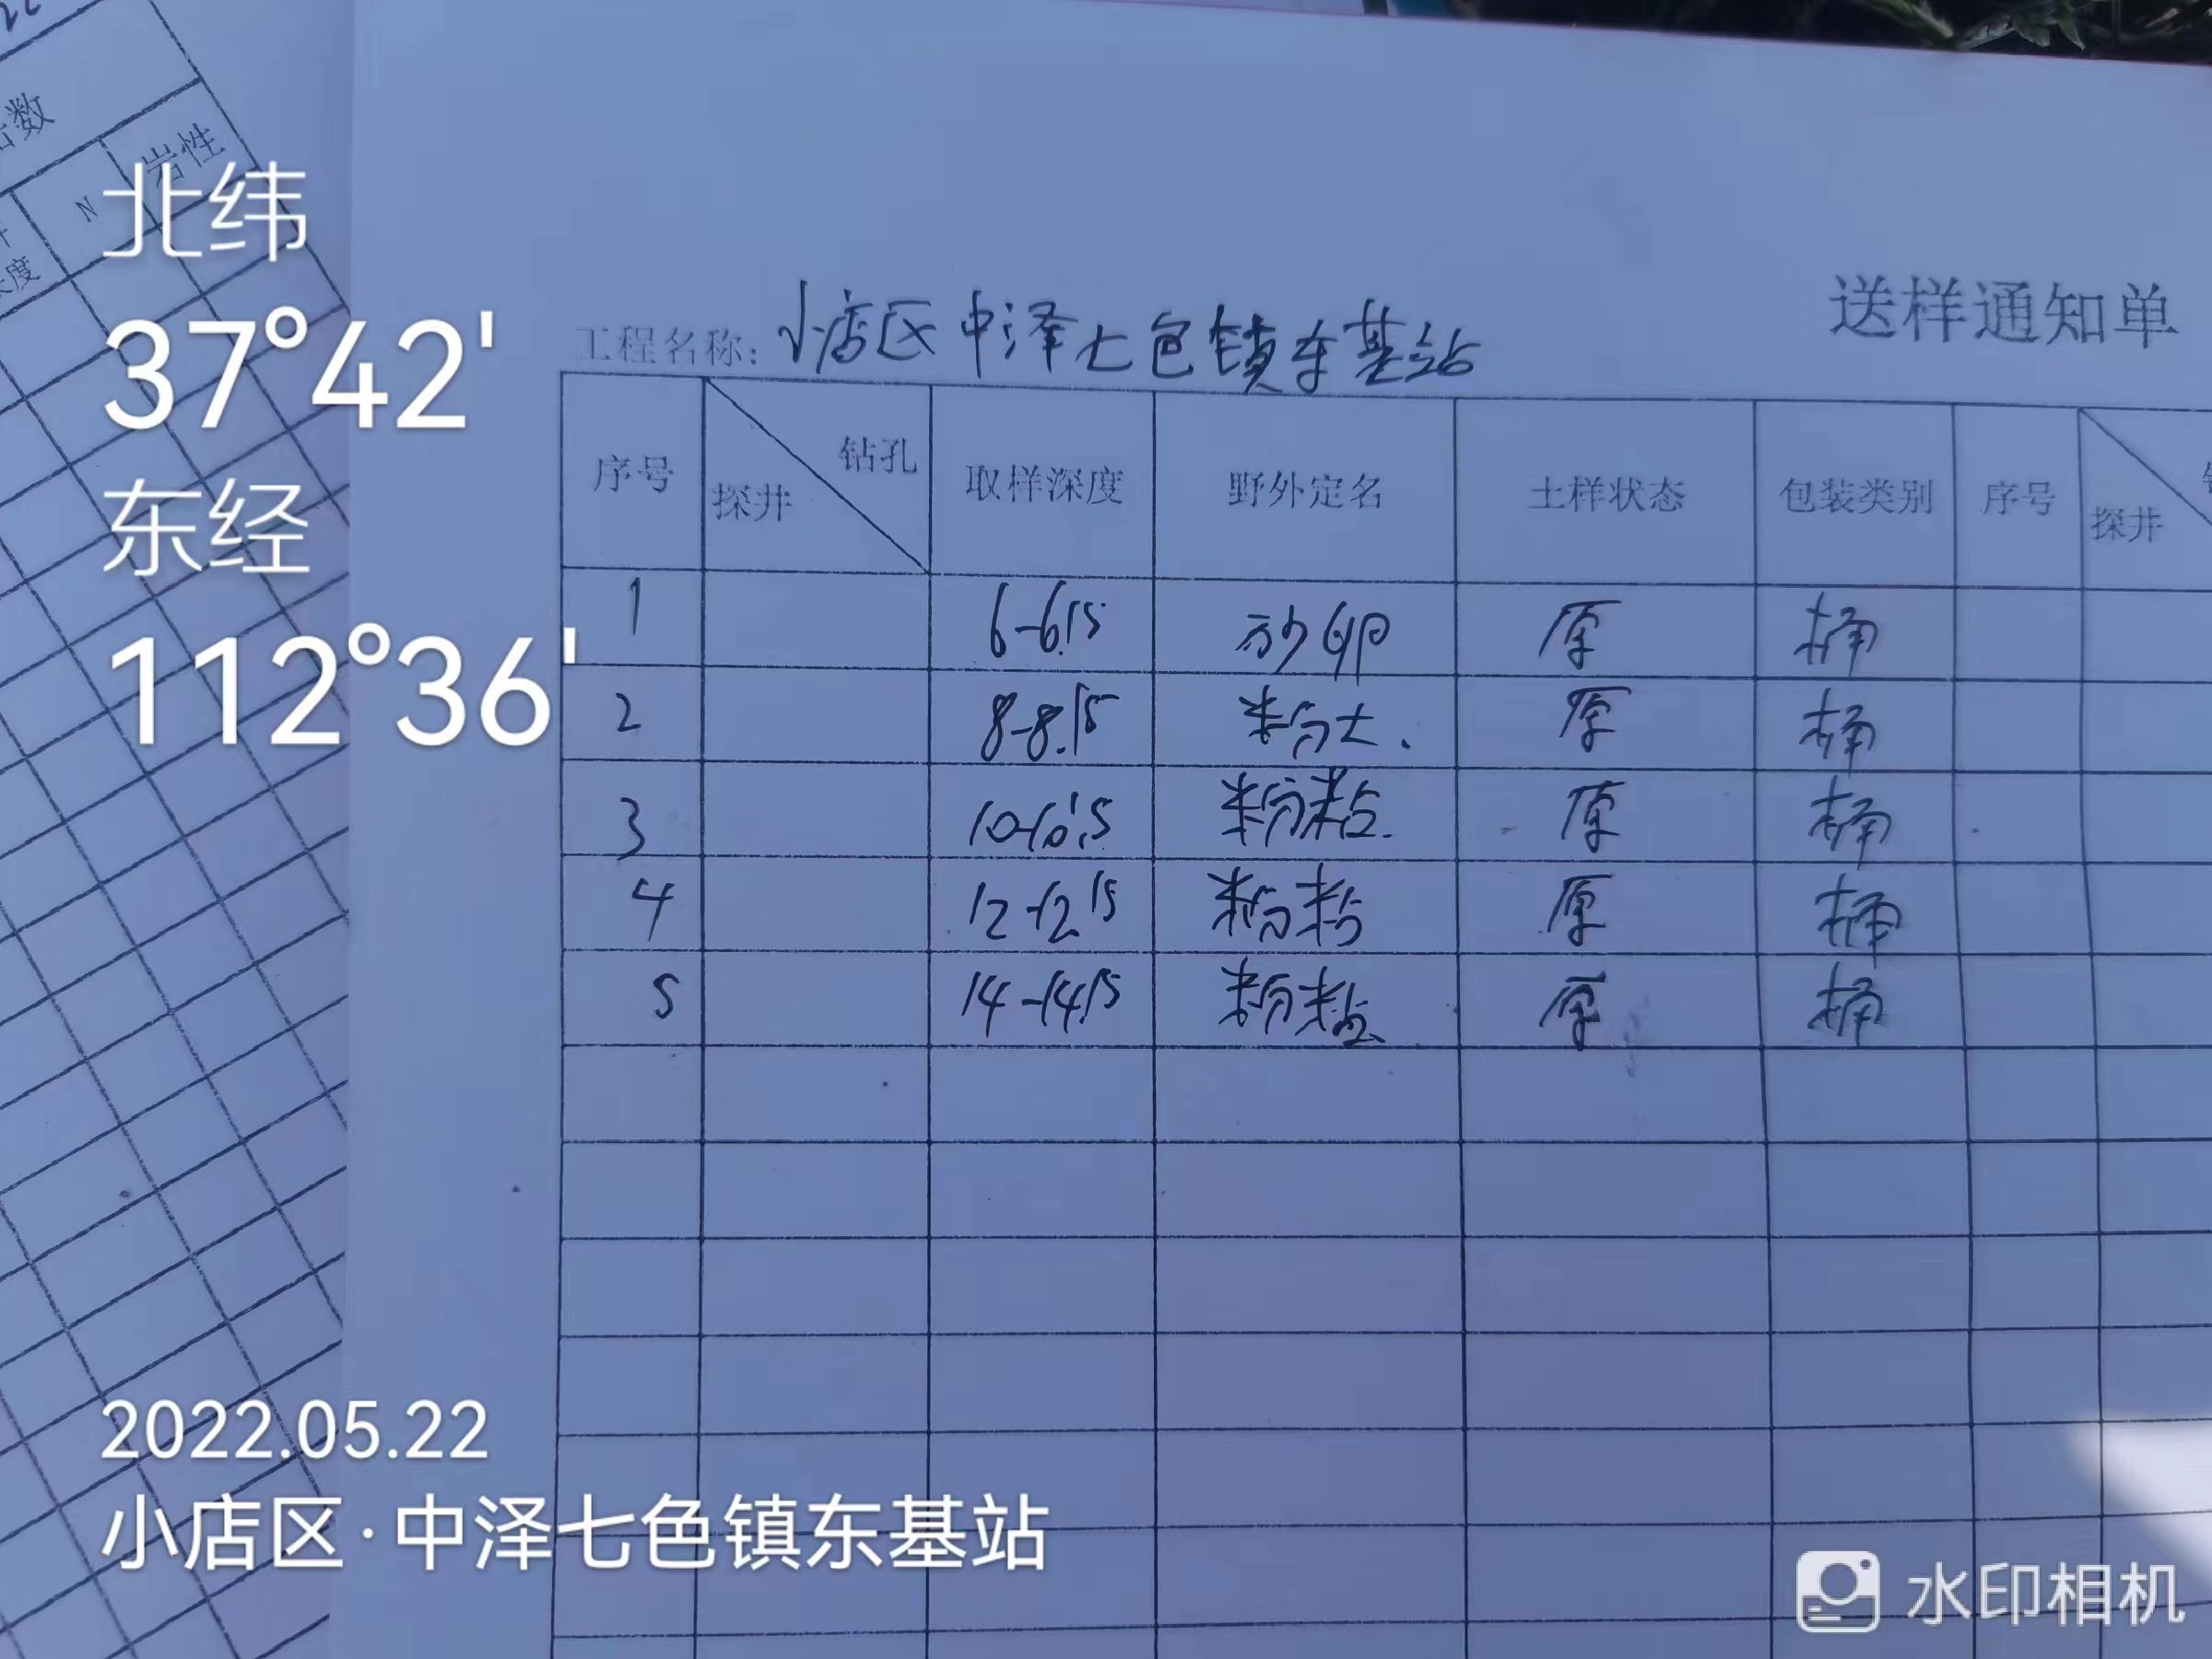 数
岩性
N
度
北纬
37°42'
东经
112°36'
送样通知单
工程名称: 小店区中泽七色镇东基站
序号 钻孔 探井 取样深度 野外定名 土样状态 包装类别 序号 探井
1 6-6.15 砂卵 原 桶
2 8-8.15 粉土. 原 桶
3 10-10.15 粉粘. 原 桶
4 12-12.15 粉粘 原 桶
5 14-14.15 粉粘 原 桶
2022.05.22
小店区·中泽七色镇东基站
水印相机